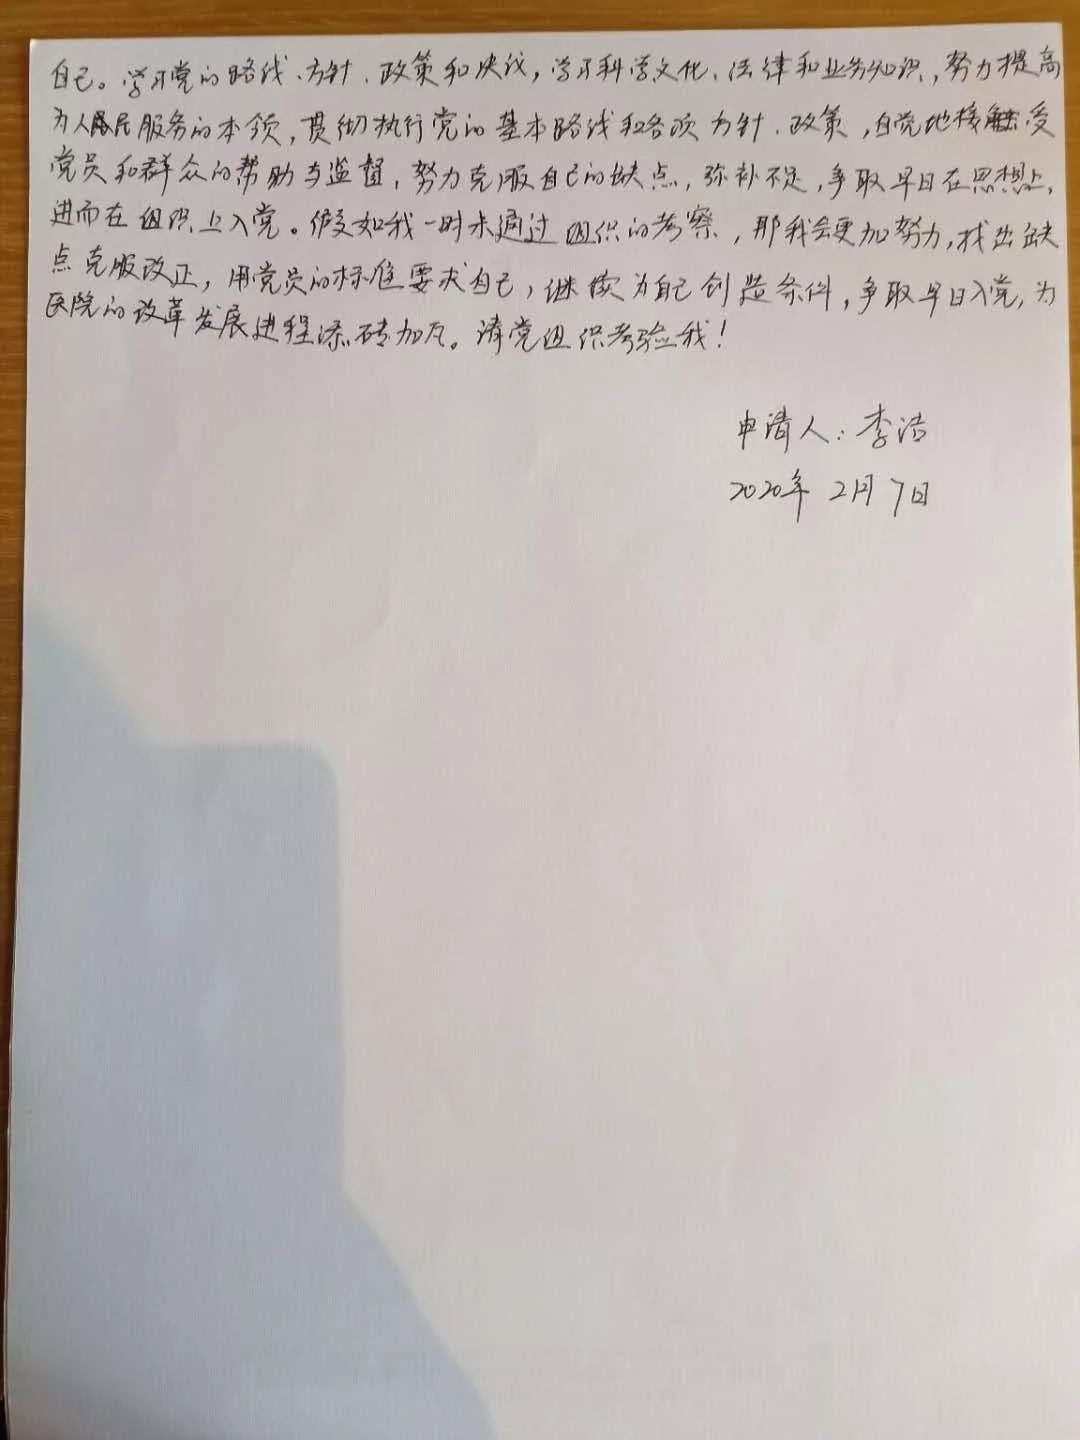 自己。学习党的路线、方针、政策和决议，学习科学文化、法律和业务知识，努力提高
为人民服务的本领，贯彻执行党的基本路线和各项方针、政策，自觉地接受
党员和群众的帮助与监督，努力克服自己的缺点，弥补不足，争取早日在思想上，
进而在组织上入党。假如我一时未通过组织的考察，那我会更加努力，找出缺
点克服改正，用党员的标准要求自己，继续为自己创造条件，争取早日入党，为
医院的改革发展进程添砖加瓦。请党组织考验我！
申请人：李洁
2020年2月7日